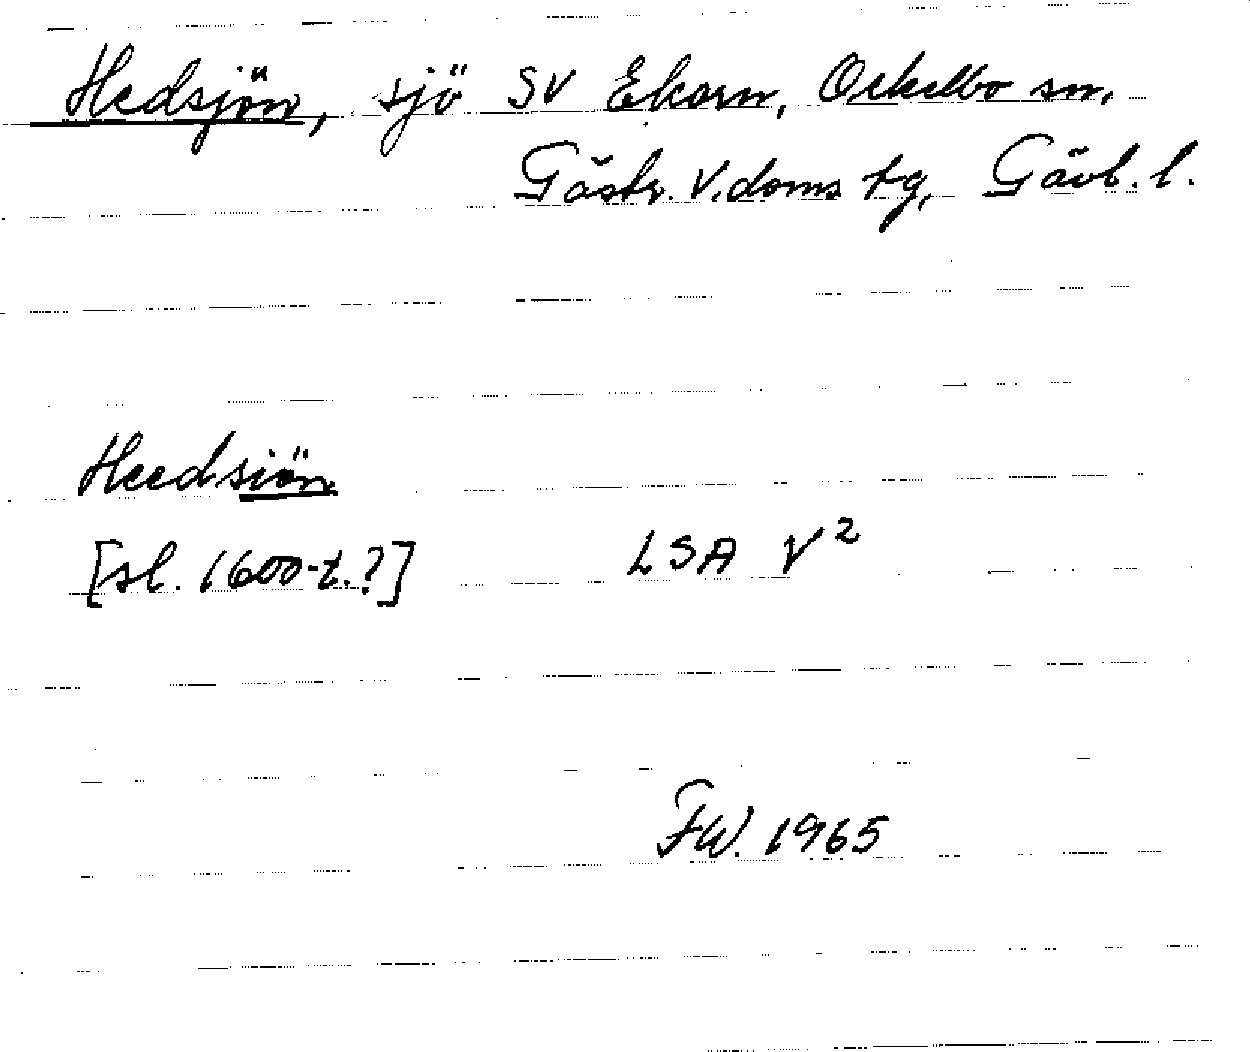 Hedsjön, sjö SV Ekorn, Ockelbo sn,
Gästr. V. doms tg, Gävl. l.
Heedsiön
[sl. 1600-t.?] LSA V²
FW. 1965